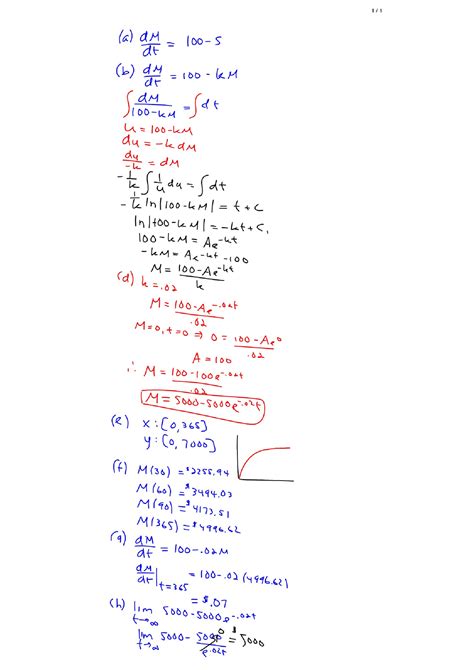 1 / 1
(a) dM/dt = 100-S
(b) dM/dt = 100 - kM
∫ dM/(100-kM) = ∫dt
u = 100-kM
du = -k dM
du/-k = dM
-1/k ∫ 1/u du = ∫dt
-1/k ln|100-kM| = t + C
ln|100-kM| = -kt + C,
100-kM = Ae^-kt
-kM = Ae^-kt -100
M = (100-Ae^-kt)/k
(d) k = .02
M = (100-Ae^-.02t)/.02
M=0, t=0 ⇒ 0 = (100-Ae^0)/.02
A = 100
∴ M = (100-100e^-.02t)/.02
M = 5000-5000e^-.02t
(e) x:[0,365]
y:[0,7000]
(f) M(30) = $2255.94
M(60) = $3494.03
M(90) = $4173.51
M(365) = $4996.62
(g) dM/dt = 100-.02M
dM/dt|t=365 = 100-.02(4996.62)
= $.07
(h) lim t→∞ 5000-5000e^-.02t
lim t→∞ 5000- 5000/e^.02t 0 = $5000